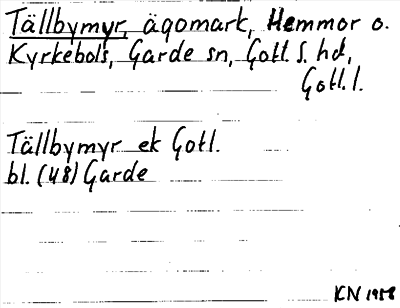 Tällbymyr, ägomark, Hemmor o.
Kyrkebols, Garde sn, Gotl. S. hd,
Gotl. l.
Tällbymyr ek Gotl.
bl. (48) Garde
KN 1958